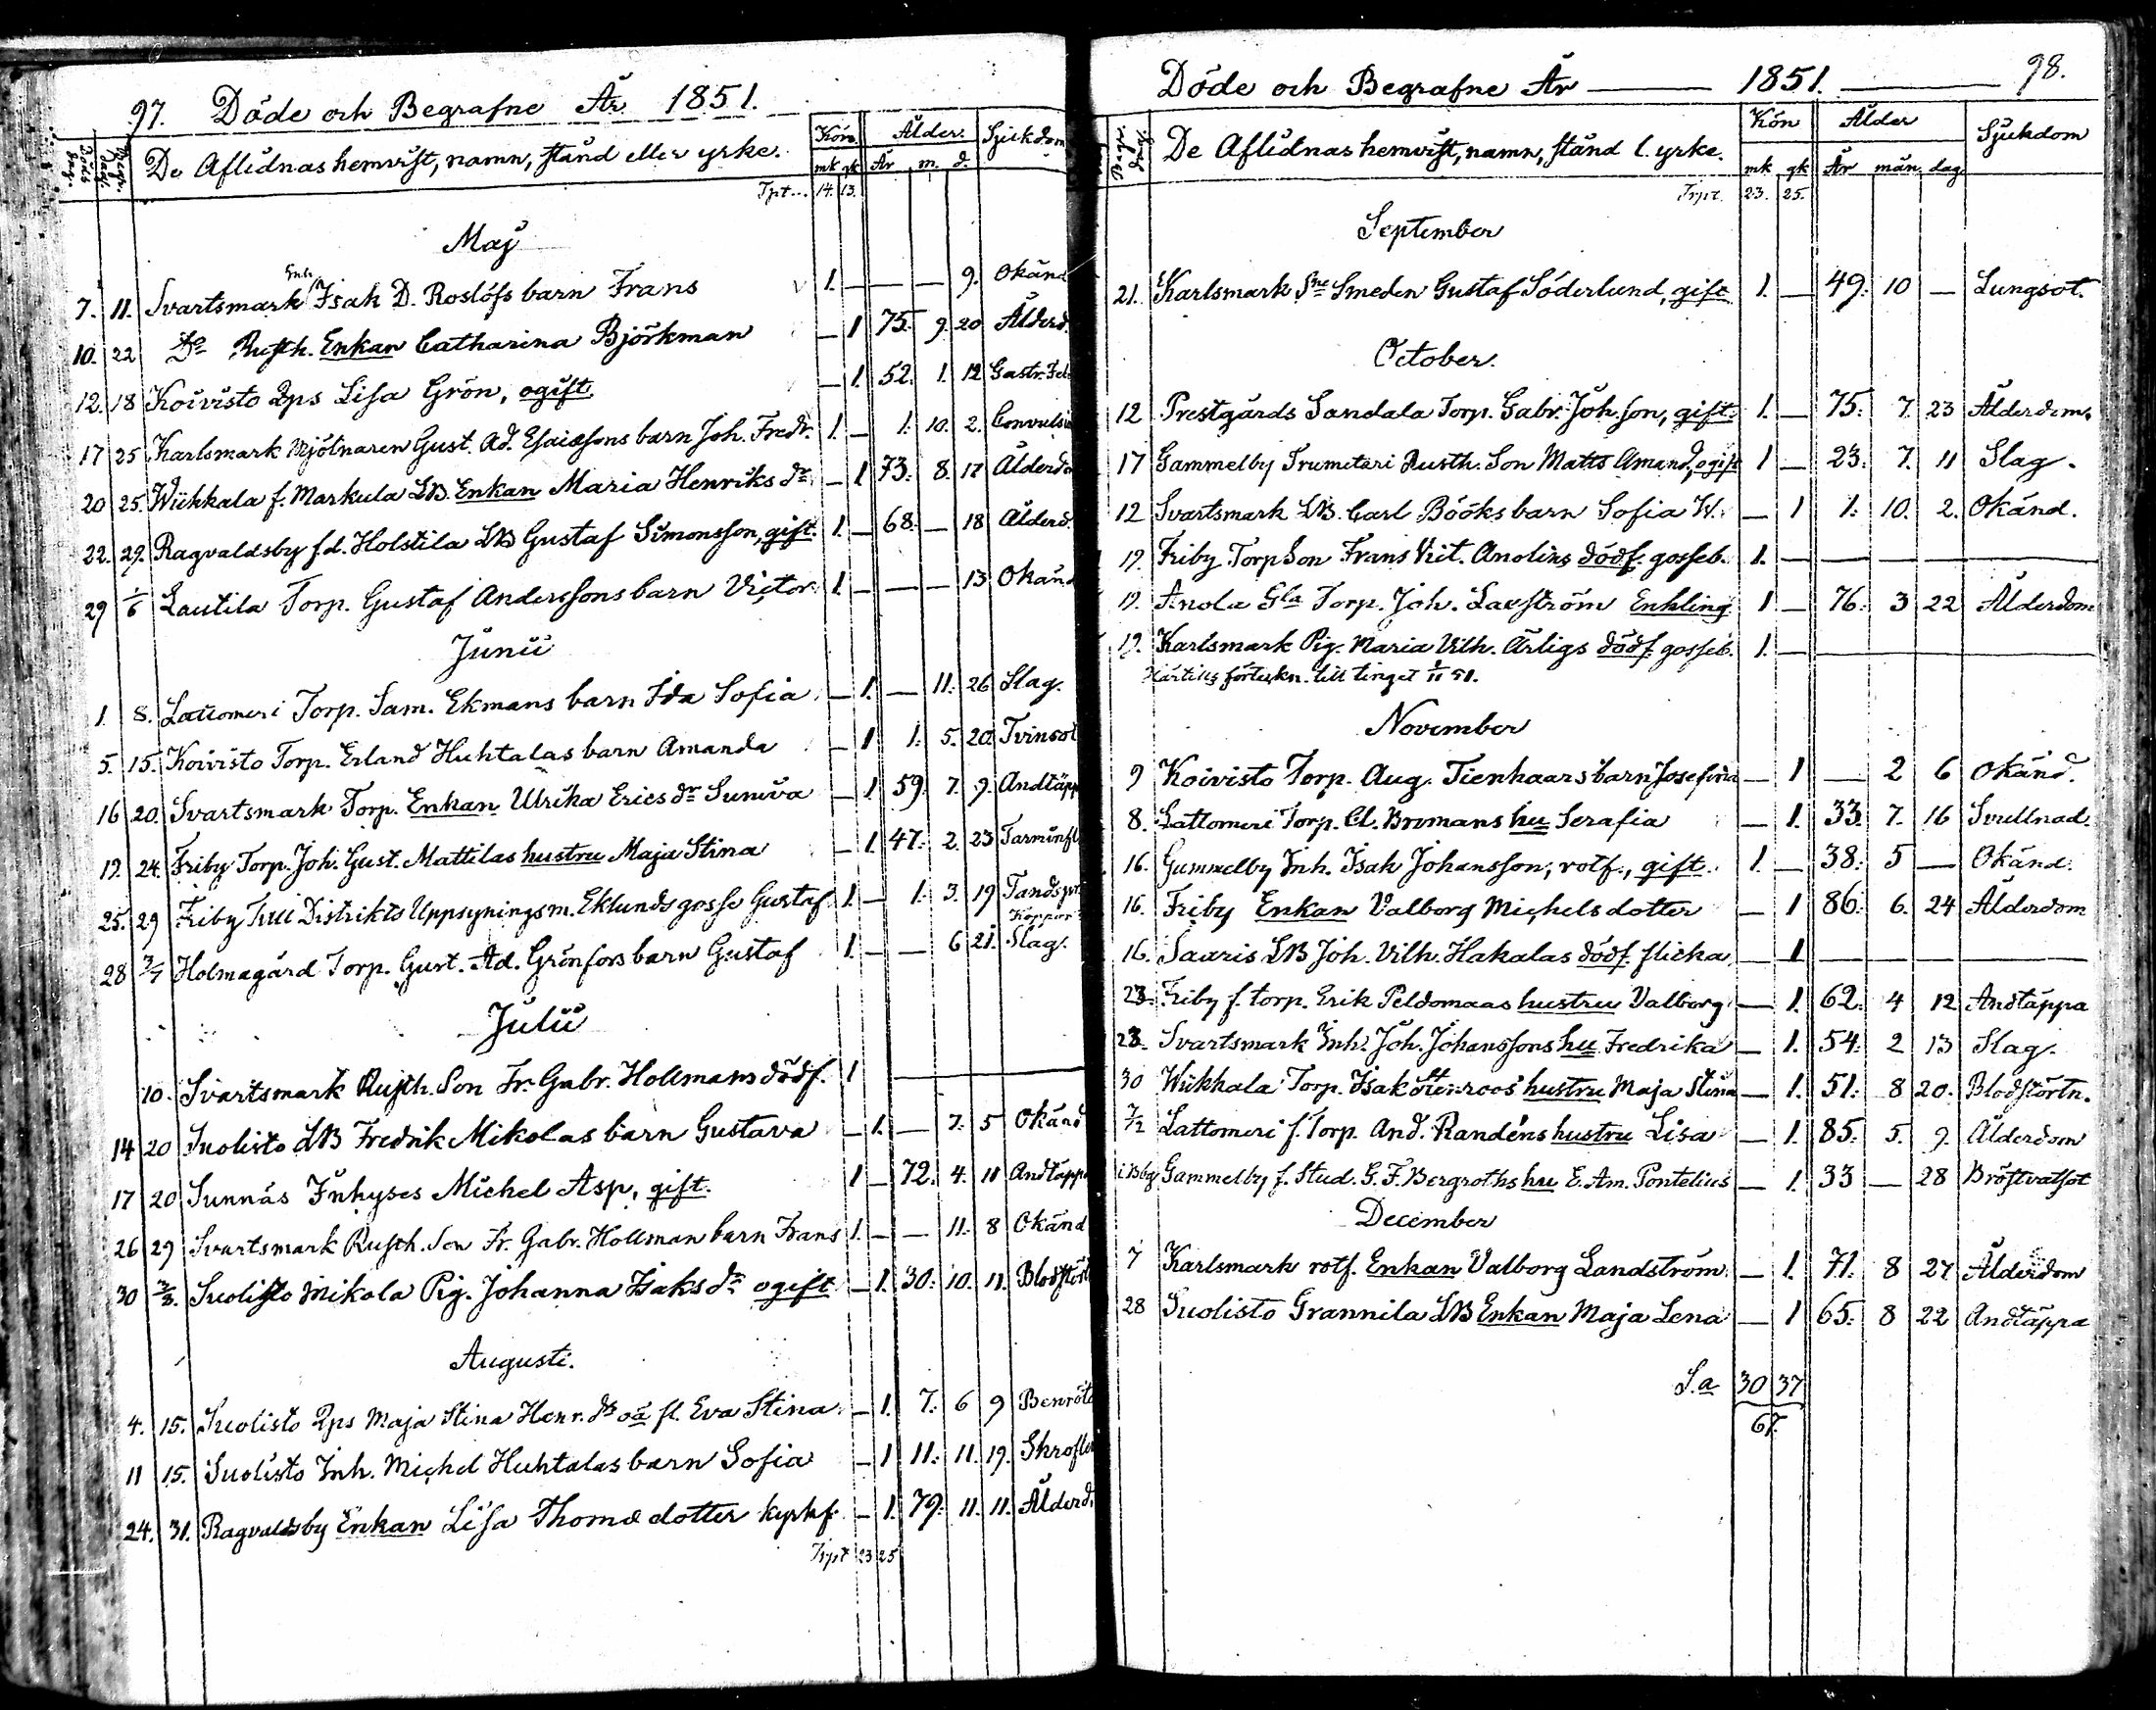 97. Döde och Begrafne År 1851.
De Aflidnas hemvist, namn, stånd eller yrke. Kön Ålder. Sjukdom
mk qk År m. d.
Tpt... 14. 13.
Maj
7. 11. Svartsmark Inh. Isak D. Roslöfs barn Frans 1. — — — 9. Okänd
10. 22 Do Rusth. Enkan Catharina Björkman — 1 75. 9. 20 Ålderd.
12. 18 Koivisto Qps Lisa Grön, ogift — 1. 52. 1. 12 Gastr. Feb
17 25 Karlsmark Mjölnaren Gust. Ad. Esaiæsons barn Joh. Fredr. 1. — 1. 10. 2. Convulsio
20 25. Wiikkala f. Markula LB. Enkan Maria Henriks dr — 1 73. 8. 17 Ålderdo
22. 29. Ragvaldsby f.d. Holstila LB Gustaf Simonsson, gift. 1. — 68. — 18 Ålderd.
29 1/6 Lautila Torp. Gustaf Anderssons barn Victor 1. — — — 13 Okänd
Junii
1. 8. Lattomeri Torp. Sam. Ekmans barn Ida Sofia — 1. — 11. 26 Slag.
5. 15. Koivisto Torp. Erland Huhtalas barn Amanda — 1 1. 5. 20. Tvinsot
16 20. Svartsmark Torp. Enkan Ulrika Erics dr Suniva — 1. 59. 7. 9. Andtäpp
19. 24. Friby Torp. Joh. Gust. Mattilas hustru Maja Stina — 1. 47. 2. 23 Tarminfl
25. 29 Friby Tull Distrikts Uppsyningsm. Eklunds gosse Gustaf 1. — 1. 3. 19 Tandspr.
Koppor
28 3/7 Holmagård Torp. Gust. Ad. Grönfors barn Gustaf 1. — — 6 21. Slag.
Julii
10. Svartsmark Rusth. Son Fr. Gabr. Hollmans dödf. 1 —
14 20 Suolisto LB Fredrik Mikolas barn Gustava — 1. — 7. 5 Okänd
17 20 Sunnäs Inhyses Michel Asp, gift. 1 — 72. 4. 11 Andtäpp
26 29 Svartsmark Rusth. Son Fr. Gabr. Hollman barn Frans 1. — — 11. 8 Okänd
30 3/8. Suolisto Mikola Pig. Johanna Isaks dr ogift — 1. 30. 10. 11. Blodstört
Augusti.
4. 15. Suolisto Qps Maja Stina Henr. drs oä fl. Eva Stina — 1. 7. 6 9 Benröta
11 15. Suolisto Inh. Michel Huhtalas barn Sofia — 1 11. 11. 19. Skrofler
24. 31. Ragvaldsby Enkan Lisa Thomædotter kyrkf. — 1. 79. 11. 11. Ålderd.
Trpt 23 25
Döde och Begrafne År — 1851. — 98.
Begr. dag. De Aflidnas hemvist, namn, stånd l. yrke. Kön Ålder Sjukdom
mk qk År mån. dag.
Trpt. 23. 25.
September
21. Karlsmark Sne Smeden Gustaf Söderlund, gift 1. — 49. 10 — Lungsot.
October.
12 Prestgårds Sandala Torp. Gabr. Joh.son, gift. 1. — 75. 7. 23 Ålderdom.
17 Gammelby Trumetari Rusth. Son Matts Amand, ogift 1 — 23. 7. 11 Slag.
12 Svartsmark LB. Carl Bööks barn Sofia W. — 1 1. 10. 2. Okänd.
19. Friby Torp Son Frans Vict. Anolins dödf. gosseb. 1. — — — — —
19. Anola Gla Torp. Joh. Laxström Enkling 1 — 76. 3 22 Ålderdom
19. Karlsmark Pig. Maria Vilh. Ärligs dödf. gosseb. 1. —
Härtills förteckn. till tinget 1/11 51.
November
9 Koivisto Torp. Aug. Tienhaars barn Josefina — 1 — 2 6 Okänd.
8. Lattomeri Torp. Cl. Bromans hu Serafia — 1. 33. 7. 16 Svullnad.
16. Gammelby Inh. Isak Johansson, rotf., gift. 1. — 38. 5 — Okänd.
16. Friby Enkan Valborg Michelsdotter — 1 86. 6. 24 Ålderdom
16. Saaris LB Joh. Vilh. Hakalas dödf. flicka — 1 — — — —
23. Friby f. torp. Erik Peldomaas hustru Valborg — 1. 62. 4 12 Andtäppa
23. Svartsmark Inh. Joh. Johanssons hu Fredrika — 1. 54. 2 13 Slag.
30 Wiikkala Torp. Isak Stenroos hustru Maja Stina — 1. 51. 8 20. Blodstörtn.
7/12 Lattomeri f. Torp. And. Randéns hustru Lisa — 1. 85. 5. 9. Ålderdom
i Bbg Gammelby f. Stud. G. F. Bergroths hu E. Am. Pontelius — 1. 33 — 28 Bröstvatsot
December
7 Karlsmark rotf. Enkan Valborg Landström — 1. 71. 8 27 Ålderdom
28 Suolisto Grannila LB Enkan Maja Lena — 1 65. 8 22 Andtäppa
S.a 30 37
67.